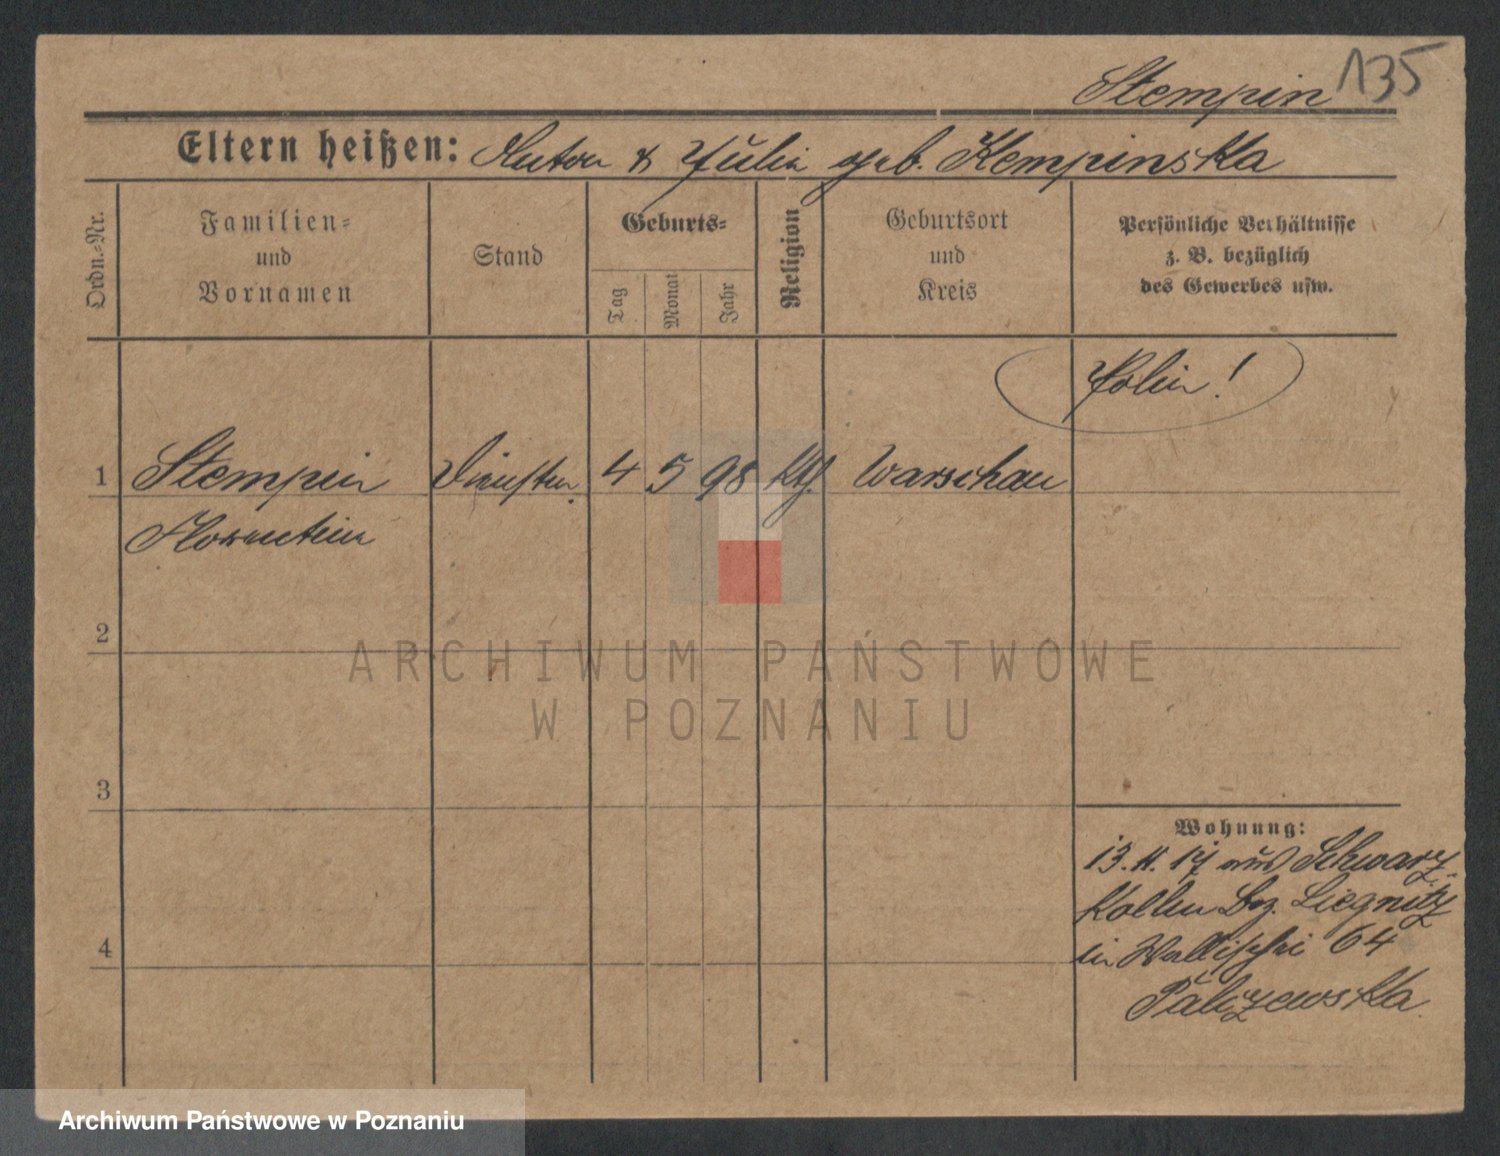 135
Stempin
Eltern heißen: Anton & Julia geb. Kempinska
Ordn.-Nr.
Familien-
und
Vornamen
Stand
Geburts-
Tag
Monat
Jahr
Religion
Geburtsort
und
Kreis
Persönliche Verhältnisse
z. B. bezüglich
des Gewerbes usw.
Polin!
1 Stempin 4 5 98 kth. Warschau
Florentina
2
3
4
Wohnung:
13.11.17 aus Schwarz-
Kollm Bz. Liegnitz
in Wallischei 64
ARCHIWUM PAŃSTWOWE
W POZNANIU
Archiwum Państwowe w Poznaniu